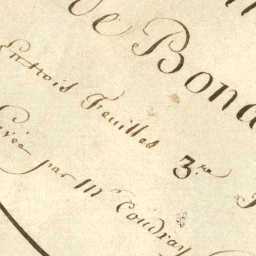 de Bond
En trois Feuilles 3.re
Levée par Mr. Coudray